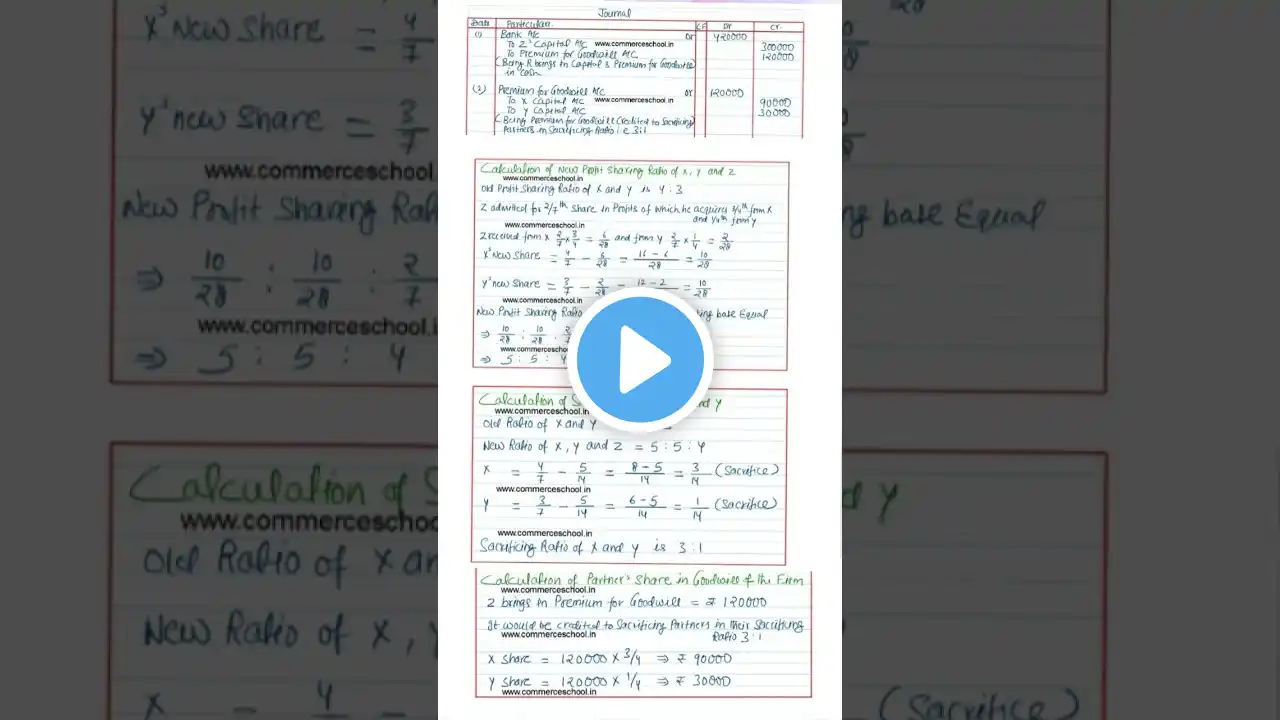 Journal
Date Particulars. LF Dr Cr.
(1) Bank A/c Dr 420000
To Z's Capital A/c www.commerceschool.in 300000
To Premium for Goodwill A/c 120000
(Being R brings in Capital & Premium for Goodwill
in cash
(2) Premium for Goodwill A/c Dr 120000
To X Capital A/c www.commerceschool.in 90000
To Y Capital A/c 30000
(Being Premium for Goodwill Credited to Sacrificing
Partners in Sacrificing Ratio i.e 3:1
Calculation of New Profit Sharing Ratio of X, Y and Z
www.commerceschool.in
Old Profit Sharing Ratio of X and Y is 4:3
Z admitted for 2/7th Share in Profits of which he acquires 3/4th from X
and 1/4th from Y
www.commerceschool.in
Z received from X 2/7 × 3/4 = 6/28 and from Y 2/7 × 1/4 = 2/28
X's New Share = 4/7 - 6/28 = 16-6/28 = 10/28
Y's New Share = 3/7 - 2/28 = 12-2 = 10/28
www.commerceschool.in
New Profit Sharing Ratio base Equal
⇒ 10/28 : 10/28 : 2/
www.commerceschool.in
⇒ 5 : 5 : 4
Calculation of S and Y
www.commerceschool.in
Old Ratio of X and Y
New Ratio of X, Y and Z = 5:5:4
X = 4/7 - 5/14 = 8-5/14 = 3/14 (Sacrifice)
www.commerceschool.in
Y = 3/7 - 5/14 = 6-5/14 = 1/14 (Sacrifice)
www.commerceschool.in
Sacrificing Ratio of X and Y is 3:1
Calculation of Partner's Share in Goodwill of the Firm
www.commerceschool.in
Z brings in Premium for Goodwill = ₹ 120000
It would be credited to Sacrificing Partners in their Sacrificing
www.commerceschool.in Ratio 3:1
X Share = 120000 × 3/4 ⇒ ₹ 90000
Y Share = 120000 × 1/4 ⇒ ₹ 30000
www.commerceschool.in
X's New Share = 4/7
Y's New Share = 3/7
www.commerceschool.in
New Profit Sharing Rat
ing base Equal
⇒ 10/28 : 10/28 : 2/7
www.commerceschool.i
⇒ 5 : 5 : 4
Calculation of S
d Y
www.commerceschool
Old Ratio of X an
New Ratio of X, Y
X = 4
(Sacrifice)